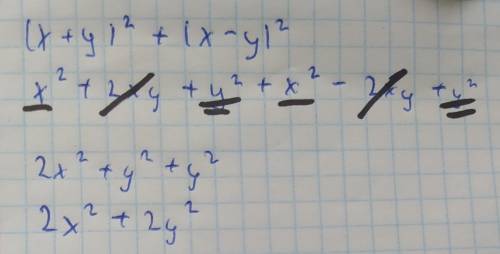 (x + y)² + (x - y)²
x² + 2xy + y² + x² - 2xy + y²
2x² + y² + y²
2x² + 2y²